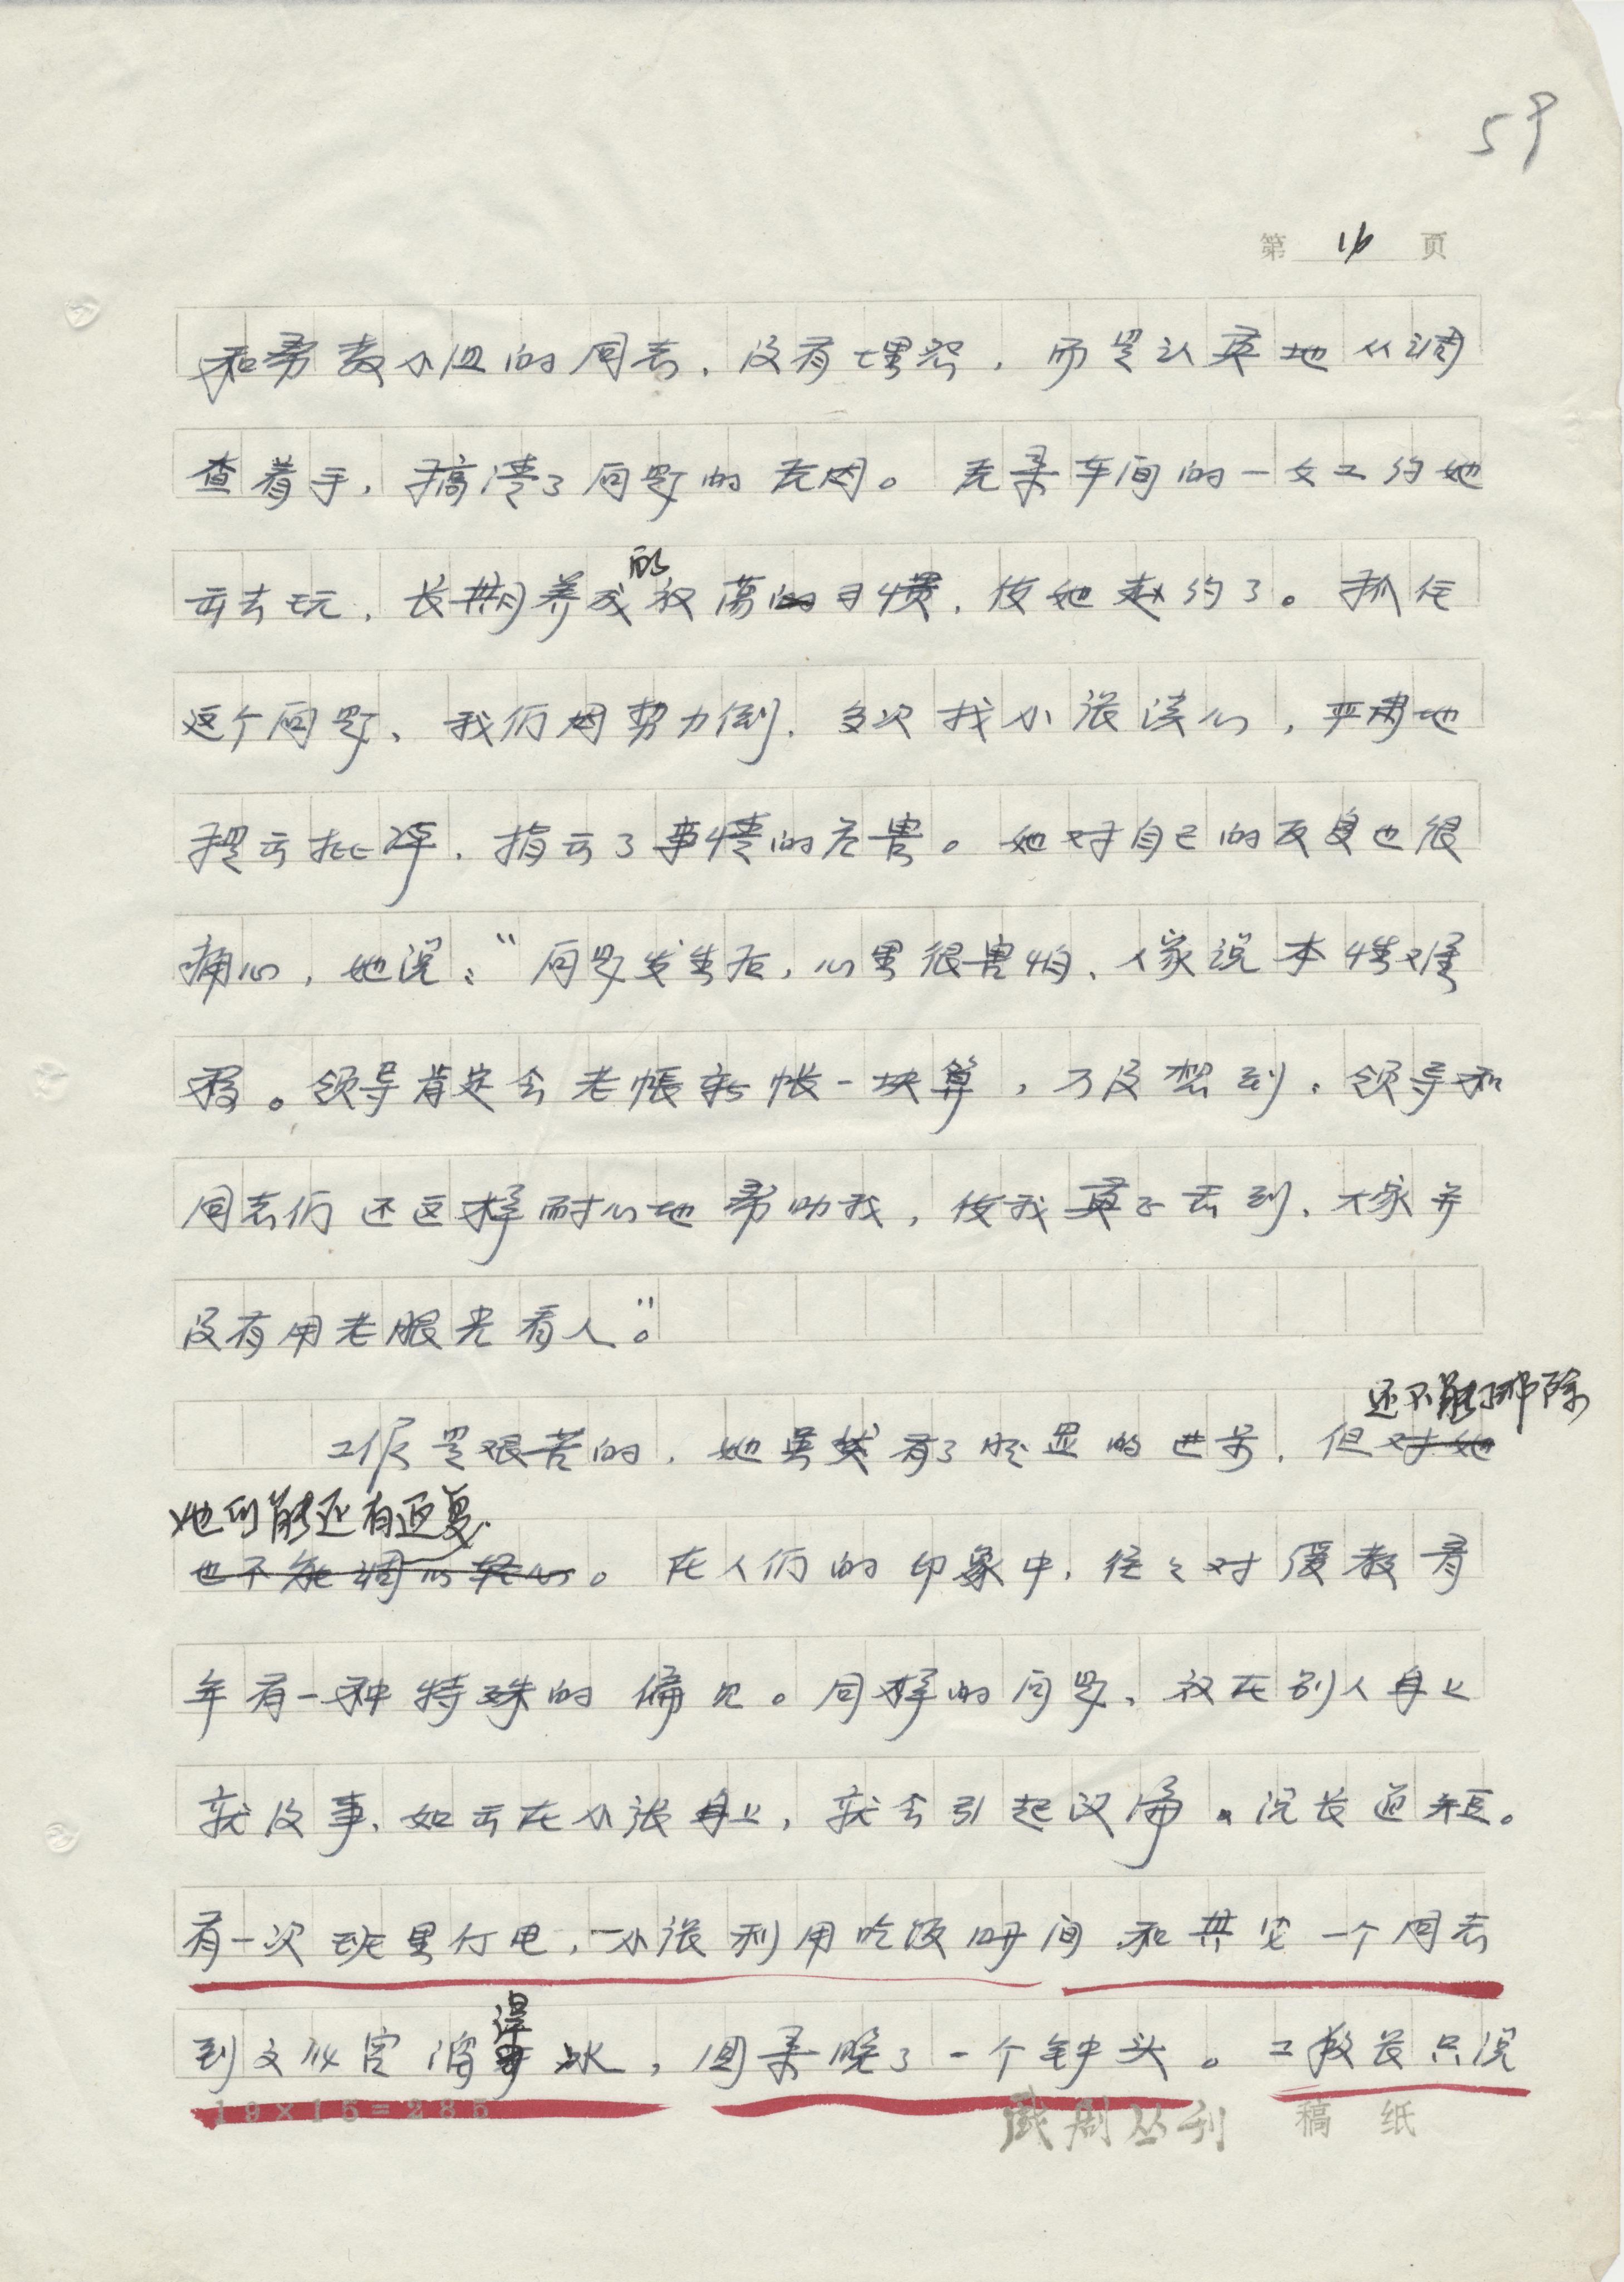 59
第 16 页
和帮教小组的同志，没有埋怨，而是认真地从调
查着手，搞清了问题的起因。原来车间的一女工约她
出去玩，长期养成的放荡习惯，使她赴约了。抓住
这个问题，我们因势力倒，多次找小张谈心，严肃地
提出批评，指出了事情的危害。她对自己的反复也很
痛心，她说：“问题发生后，心里很害怕，人家说本性难
移。领导肯定会老帐新帐一块算，万没想到，领导和
同志们还这样耐心地帮助我，使我真正看到，大家并
没有用老眼光看人。”
还不能排除
工作是艰苦的，她虽然有了明显的进步，但对她
她可能还有反复
也不能调以轻心。在人们的印象中，往々对受教育
年有一种特殊的偏见。同样的问题，放在别人身上
就没事，如出在小张身上，就会引起议论，说长道短。
有一次班里停电，小张利用吃饭时间和其它一个同志
到文化宫溜旱冰，回来晚了一个钟头。工段长只说
19×15=285
戏剧丛刊 稿纸